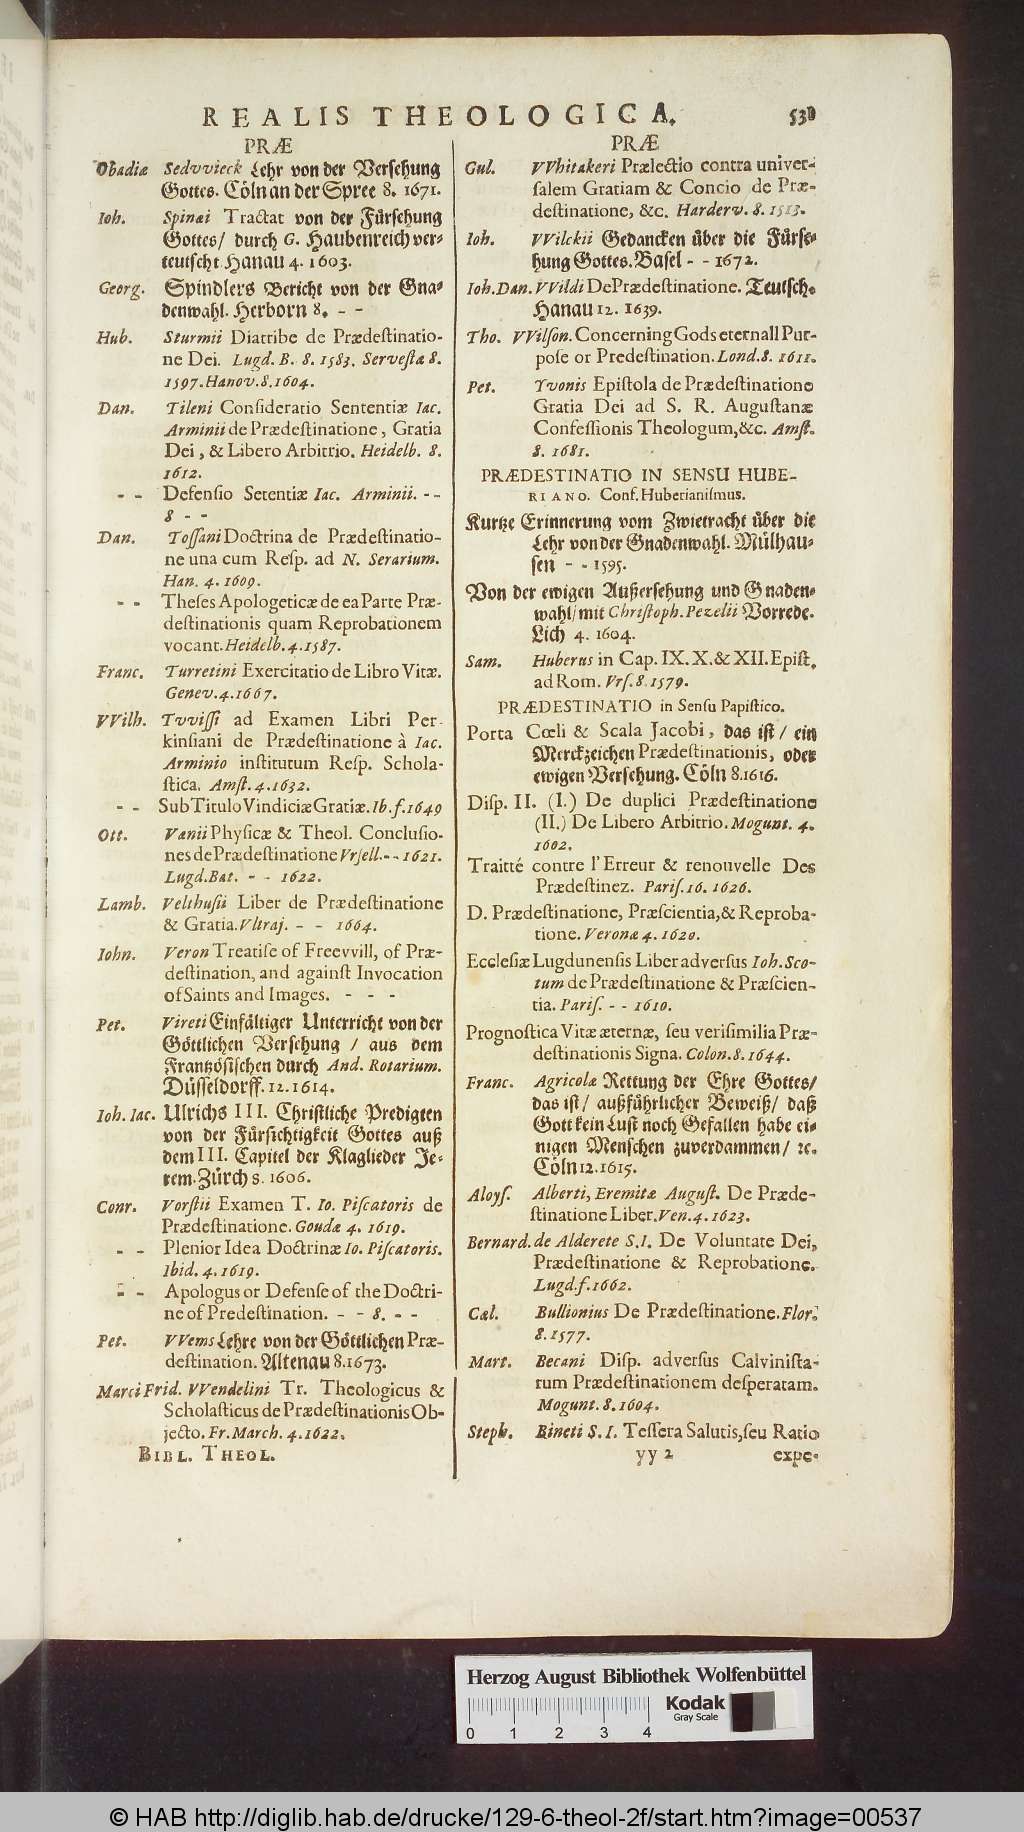 REALIS THEOLOGICA. 53
PRÆ
Obadiæ Sedvvieck Lehr von der Versehung
Gottes. Cöln an der Spree 8. 1671.
Ioh. Spinæi Tractat von der Fürsehung
Gottes/ durch G. Haubenreich ver-
teutscht Hanau 4. 1603.
Georg. Spindlers Bericht von der Gna-
denwahl. Herborn 8. - -
Hub. Sturmii Diatribe de Prædeſtinatio-
ne Dei. Lugd. B. 8. 1583. Serveſtæ 8.
1597. Hanov. 8. 1604.
Dan. Tileni Conſideratio Sententiæ Iac.
Arminii de Prædeſtinatione, Gratia
Dei, & Libero Arbitrio. Heidelb. 8.
1612.
- - Defenſio Setentiæ Iac. Arminii. - -
8 - -
Dan. Toſſani Doctrina de Prædeſtinatio-
ne una cum Reſp. ad N. Serarium.
Han. 4. 1609.
- - Theſes Apologeticæ de ea Parte Præ-
deſtinationis quam Reprobationem
vocant. Heidelb. 4. 1587.
Franc. Turretini Exercitatio de Libro Vitæ.
Genev. 4. 1667.
VVilh. Tvviſſi ad Examen Libri Per-
kinſiani de Prædeſtinatione à Iac.
Arminio inſtitutum Reſp. Schola-
ſtica. Amſt. 4. 1632.
- - Sub Titulo Vindiciæ Gratiæ. Ib. f. 1649
Ott. Vanii Phyſicæ & Theol. Concluſio-
nes de Prædeſtinatione Vrſell. - - 1621.
Lugd. Bat. - - 1622.
Lamb. Velthuſii Liber de Prædeſtinatione
& Gratia. Vltraj. - - 1664.
Iohn. Veron Treatiſe of Freevvill, of Præ-
deſtination, and againſt Invocation
of Saints and Images. - - -
Pet. Vireti Einfältiger Unterricht von der
Göttlichen Versehung / aus dem
Frantzösischen durch And. Rotarium.
Düsseldorff. 12. 1614.
Ioh. Iac. Ulrichs III. Christliche Predigten
von der Fürsichtigkeit Gottes auß
dem III. Capitel der Klaglieder Je-
rem. Zürch 8. 1606.
Conr. Vorſtii Examen T. Io. Piſcatoris de
Prædeſtinatione. Goudæ 4. 1619.
- - Plenior Idea Doctrinæ Io. Piſcatoris.
Ibid. 4. 1619.
- - Apologus or Defenſe of the Doctri-
ne of Predeſtination. - - 8. - -
Pet. VVems Lehre von der Göttlichen Præ-
deſtination. Altenau 8. 1673.
Marci Frid. VVendelini Tr. Theologicus &
Scholaſticus de Prædeſtinationis Ob-
jecto. Fr. March. 4. 1622.
BIBL. THEOL.
PRÆ
Gul. VVhitakeri Prælectio contra univer-
ſalem Gratiam & Concio de Præ-
deſtinatione, &c. Harderv. 8. 1513.
Ioh. VVilckii Gedancken über die Fürse-
hung Gottes. Basel - - 1672.
Ioh. Dan. VVildi De Prædeſtinatione. Teutsch.
Hanau 12. 1639.
Tho. VVilſon. Concerning Gods eternall Pur-
poſe or Predeſtination. Lond. 8. 1611.
Pet. Yvonis Epiſtola de Prædeſtinatione
Gratia Dei ad S. R. Auguſtanæ
Confeſſionis Theologum, &c. Amſt.
8. 1681.
PRÆDESTINATIO IN SENSU HUBE-
RIANO. Conf. Huberianiſmus.
Kurtze Erinnerung vom Zwietracht über die
Lehr von der Gnadenwahl. Mülhau-
sen - - 1595.
Von der ewigen Außersehung und Gnaden-
wahl/ mit Chriſtoph. Pezelii Vorrede.
Lich 4. 1604.
Sam. Huberus in Cap. IX. X. & XII. Epiſt.
ad Rom. Vrſ. 8. 1579.
PRÆDESTINATIO in Senſu Papiſtico.
Porta Cœli & Scala Jacobi, das ist / ein
Merckzeichen Prædeſtinationis, oder
ewigen Versehung. Cöln 8. 1616.
Diſp. II. (I.) De duplici Prædeſtinatione
(II.) De Libero Arbitrio. Mogunt. 4.
1602.
Traitté contre l'Erreur & renouvelle Des
Prædeſtinez. Pariſ. 16. 1626.
D. Prædeſtinatione, Præſcientia, & Reproba-
tione. Veronæ 4. 1620.
Eccleſiæ Lugdunenſis Liber adverſus Ioh. Sco-
tum de Prædeſtinatione & Præſcien-
tia. Pariſ. - - 1610.
Prognoſtica Vitæ æternæ, ſeu veriſimilia Præ-
deſtinationis Signa. Colon. 8. 1644.
Franc. Agricolæ Rettung der Ehre Gottes/
das ist / außführlicher Beweiß/ daß
Gott kein Lust noch Gefallen habe ei-
nigen Menschen zuverdammen / ꝛc.
Cöln 12. 1615.
Aloyſ. Alberti, Eremitæ Auguſt. De Præde-
ſtinatione Liber. Ven. 4. 1623.
Bernard. de Alderete S. I. De Voluntate Dei,
Prædeſtinatione & Reprobatione.
Lugd. f. 1662.
Cæl. Bullionius De Prædeſtinatione. Flor.
8. 1577.
Mart. Becani Diſp. adverſus Calviniſta-
rum Prædeſtinationem deſperatam.
Mogunt. 8. 1604.
Steph. Bineti S. I. Teſſera Salutis, ſeu Ratio
yy 2 expe-
Herzog August Bibliothek Wolfenbüttel
Kodak
Gray Scale
0 1 2 3 4
© HAB http://diglib.hab.de/drucke/129-6-theol-2f/start.htm?image=00537